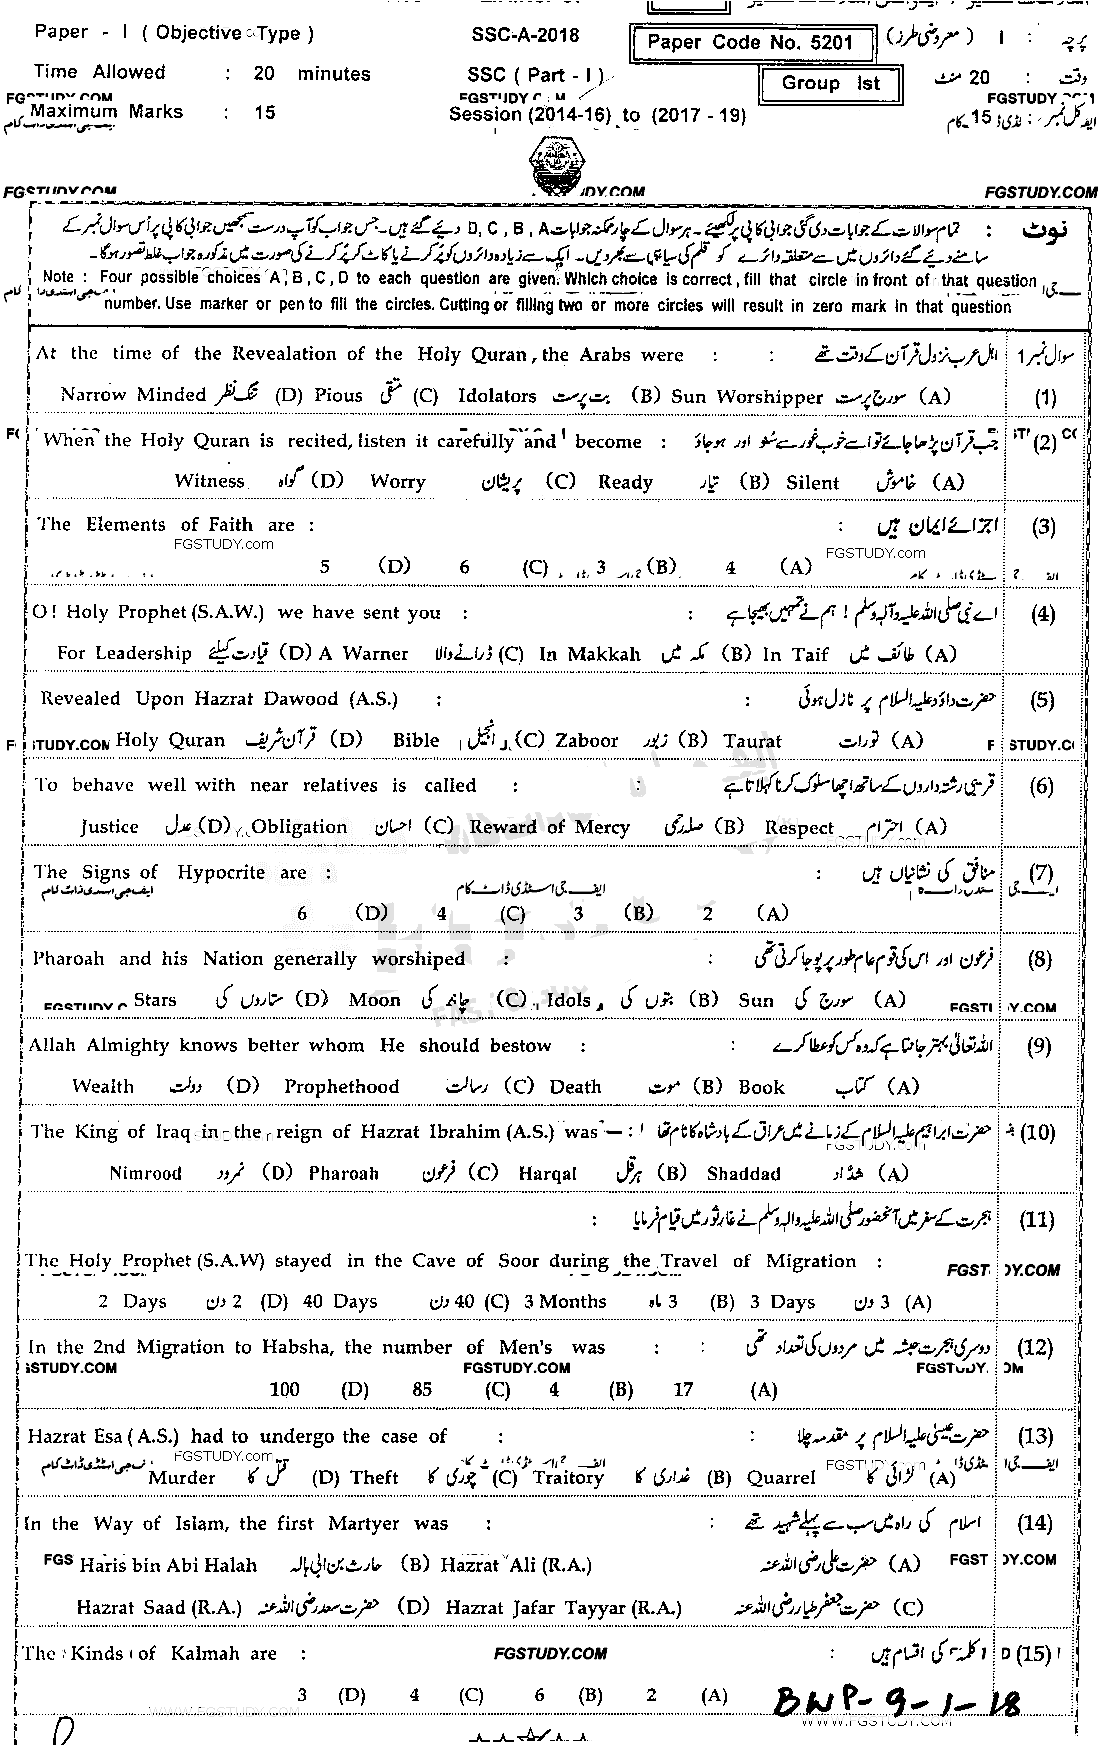 Paper - I ( Objective Type ) SSC-A-2018 Paper Code No. 5201 پرچہ : I ( معروضی طرز )
Time Allowed : 20 minutes SSC ( Part - I ) Group Ist وقت : 20 منٹ
FGSTUDY.COM FGSTUDY.COM FGSTUDY
Maximum Marks : 15 Session (2014-16) to (2017 - 19) 15
FGSTUDY.COM DY.COM FGSTUDY.COM
نوٹ : تمام سوالات کے جوابات دی گئی جوابی کاپی پر لکھیئے - ہر سوال کے چار ممکنہ جوابات D , C , B , A دیئے گئے ہیں - جس جواب کو آپ درست سمجھیں جوابی کاپی پر اس سوال نمبر کے
سامنے دیئے گئے دائروں میں سے متعلقہ دائرے کو قلم کی سیاہی سے بھر دیں - ایک سے زیادہ دائروں کو پُر کرنے یا کاٹ کر پُر کرنے کی صورت میں مذکورہ جواب غلط تصور ہو گا -
Note : Four possible choices A, B , C , D to each question are given. Which choice is correct, fill that circle in front of that question
number. Use marker or pen to fill the circles. Cutting or filling two or more circles will result in zero mark in that question
At the time of the Revealation of the Holy Quran, the Arabs were : : اہل عرب نزول قرآن کے وقت تھے سوال نمبر 1
Narrow Minded تنگ نظر (D) Pious متقی (C) Idolators بت پرست (B) Sun Worshipper سورج پرست (A) (1)
When the Holy Quran is recited, listen it carefully and become : جب قرآن پڑھا جائے تو اسے خوب غور سے سنو اور ہو جاؤ (2)
Witness گواہ (D) Worry پریشان (C) Ready تیار (B) Silent خاموش (A)
The Elements of Faith are : : اجزائے ایمان ہیں (3)
FGSTUDY.com FGSTUDY.com
5 (D) 6 (C) 3 (B) 4 (A)
O! Holy Prophet (S.A.W.) we have sent you : : اے نبی صلی اللہ علیہ وآلہ وسلم ! ہم نے تمہیں بھیجا ہے (4)
For Leadership قیادت کیلئے (D) A Warner ڈرانے والا (C) In Makkah مکہ میں (B) In Taif طائف میں (A)
Revealed Upon Hazrat Dawood (A.S.) : : حضرت داؤد علیہ السلام پر نازل ہوئی (5)
STUDY.COM Holy Quran قرآن شریف (D) Bible انجیل (C) Zaboor زبور (B) Taurat تورات (A) F STUDY.C
To behave well with near relatives is called : : قریبی رشتہ داروں کے ساتھ اچھا سلوک کرنا کہلاتا ہے (6)
Justice عدل (D) Obligation احسان (C) Reward of Mercy صلہ رحمی (B) Respect احترام (A)
The Signs of Hypocrite are : : منافق کی نشانیاں ہیں (7)
ایف جی اسٹڈی ڈاٹ کام ایف جی اسٹڈی ڈاٹ کام
6 (D) 4 (C) 3 (B) 2 (A)
Pharoah and his Nation generally worshiped : : فرعون اور اس کی قوم عام طور پر پوجا کرتی تھی (8)
FGSTUDY.C Stars ستاروں کی (D) Moon چاند کی (C) Idols بتوں کی (B) Sun سورج کی (A) FGSTU DY.COM
Allah Almighty knows better whom He should bestow : : اللہ تعالیٰ بہتر جانتا ہے کہ وہ کس کو عطا کرے (9)
Wealth دولت (D) Prophethood رسالت (C) Death موت (B) Book کتاب (A)
The King of Iraq in the reign of Hazrat Ibrahim (A.S.) was : حضرت ابراہیم علیہ السلام کے زمانے میں عراق کے بادشاہ کا نام تھا (10)
Nimrood نمرود (D) Pharoah فرعون (C) Harqal ہرقل (B) Shaddad شداد (A)
: ہجرت کے سفر میں آنحضور صلی اللہ علیہ والہ وسلم نے غار ثور میں قیام فرمایا (11)
The Holy Prophet (S.A.W) stayed in the Cave of Soor during the Travel of Migration : FGST DY.COM
2 Days 2 دن (D) 40 Days 40 دن (C) 3 Months 3 ماہ (B) 3 Days 3 دن (A)
In the 2nd Migration to Habsha, the number of Men's was : : دوسری ہجرت حبشہ میں مردوں کی تعداد تھی (12)
STUDY.COM FGSTUDY.COM FGSTUDY. OM
100 (D) 85 (C) 4 (B) 17 (A)
Hazrat Esa (A.S.) had to undergo the case of : : حضرت عیسیٰ علیہ السلام پر مقدمہ چلا (13)
FGSTUDY.com
Murder قتل کا (D) Theft چوری کا (C) Traitory غداری کا (B) Quarrel لڑائی کا (A)
In the Way of Islam, the first Martyer was : : اسلام کی راہ میں سب سے پہلے شہید تھے (14)
FGS Haris bin Abi Halah حارث بن ابی ہالہ (B) Hazrat Ali (R.A.) حضرت علی رضی اللہ عنہ (A) FGST DY.COM
Hazrat Saad (R.A.) حضرت سعد رضی اللہ عنہ (D) Hazrat Jafar Tayyar (R.A.) حضرت جعفر طیار رضی اللہ عنہ (C)
The Kinds of Kalmah are : FGSTUDY.COM : کلمہ کی اقسام ہیں (15)
3 (D) 4 (C) 6 (B) 2 (A) BWP-9-1-18
WWW.FGSTUDY.COM